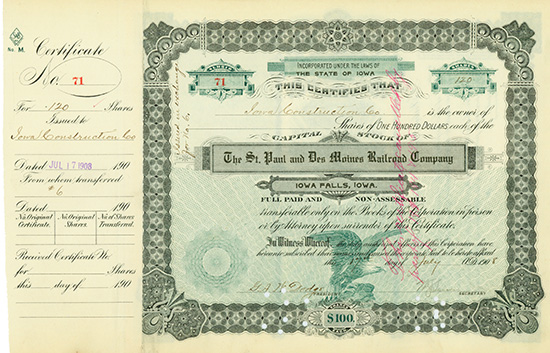 No. M.
Certificate
No. 71
For 120 Shares
Issued to
Iowa Construction Co
Dated JUL 17 1908 190
From whom transferred
#6
Dated 190
No. Original Certificate. No. Original Shares. No. of Shares Transferred.
Received Certificate No
for Shares
this day of 190
NUMBER
71
INCORPORATED UNDER THE LAWS OF
THE STATE OF IOWA
SHARES
120
THIS CERTIFIES THAT
Iowa Construction Co is the owner of
Shares of ONE HUNDRED DOLLARS each of the
CAPITAL STOCK OF
The St. Paul and Des Moines Railroad Company
IOWA FALLS, IOWA.
FULL PAID AND NON-ASSESSABLE
transferable only on the Books of the Corporation in person
or by Attorney upon surrender of this Certificate.
In Witness Whereof, the duly authorized officers of this Corporation have
hereunto subscribed their names and caused the corporate Seal to be hereto affixed
day of July 1908
PRESIDENT
SECRETARY
$100.